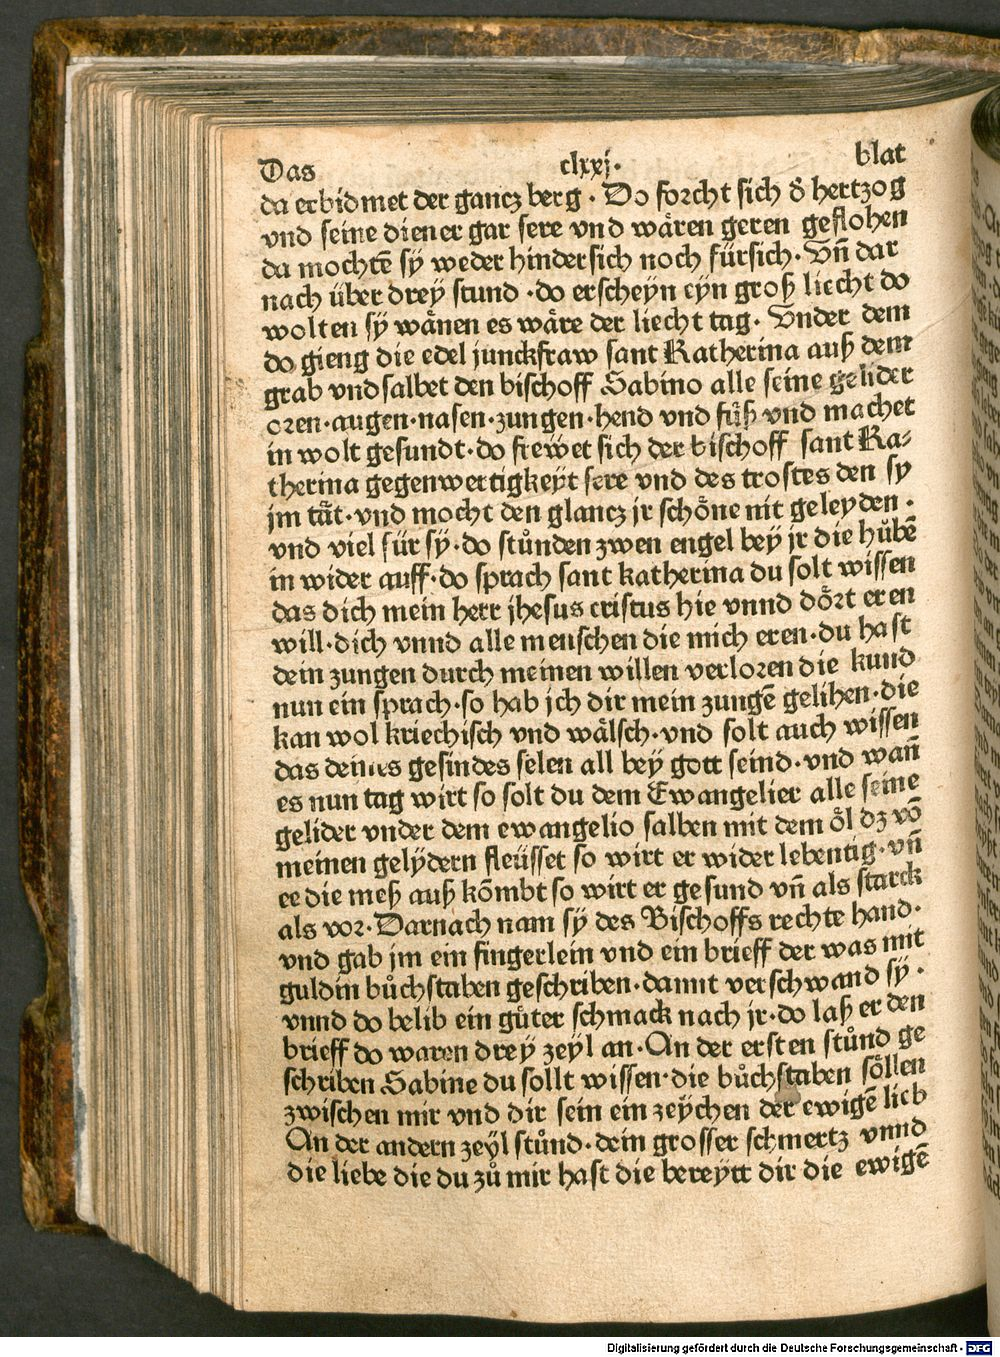 Das clxxj· blat
da erbidmet der gancz berg · Do forcht sich d̕ hertzog
vnd seine diener gar sere vnd wåren geren geflohen
da mochtē sÿ weder hindersich noch fürsich· Vn̄ dar
nach über dreÿ stund ·do erscheÿn eyn groß liecht do
wolten sÿ wånen es wåre der liecht tag· Vnder dem
do gieng die edel junckfraw sant Katherina auß dem
grab vnd salbet den bischoff Sabino alle seine gelider
oren·augen·nasen·zungen·hend vnd fůß vnd machet
in wolt gesundt·do freẅet sich der bischoff sant Ka⸗
therina gegenwertigkeÿt sere vnd des trostes den sy
jm tåt·vnd mocht den glancz jr schöne nit geleyden·
vnd viel für sÿ·do stůnden zwen engel beÿ jr die hůbē
in wider auff·do sprach sant katherina du solt wissen
das dich mein herr jhesus cristus hie vnnd dört eren
will·dich vnnd alle menschen die mich eren·du hast
dein zungen durch meinen willen verloren die kund
nun ein sprach·so hab jch dir mein zungē gelihen·die
kan wol kriechisch vnd wålsch·vnd solt auch wissen
das deines gesindes selen all beÿ gott seind·vnd wan̄
es nun tag wirt so solt du dem Ewangelier alle seine
gelider vnder dem ewangelio salben mit dem öl dz vō
meinen gelÿdern fleüsset so wirt er wider lebentig·vn̄
ee die meß auß kōmbt so wirt er gesund vn̄ als starck
als vor·Darnach nam sÿ des Bischoffs rechte hand·
vnd gab jm ein fingerlein vnd ein brieff der was mit
guldin bůchstaben geschriben·damit verschwand sÿ·
vnnd do belib ein gůter schmack nach jr·do laß er den
brieff do waren dreÿ zeÿl an·An der ersten stůnd ge
schriben Sabine du sollt wissen·die bůchstaben söllen
zwischen mir vnd dir sein ein zeÿchen der ewigē lieb
An der andern zeÿl stůnd·dein grosser schmertz vnnd
die liebe die du zů mir hast die bereÿtt dir die ewigē
Digitalisierung gefördert durch die Deutsche Forschungsgemeinschaft - DFG